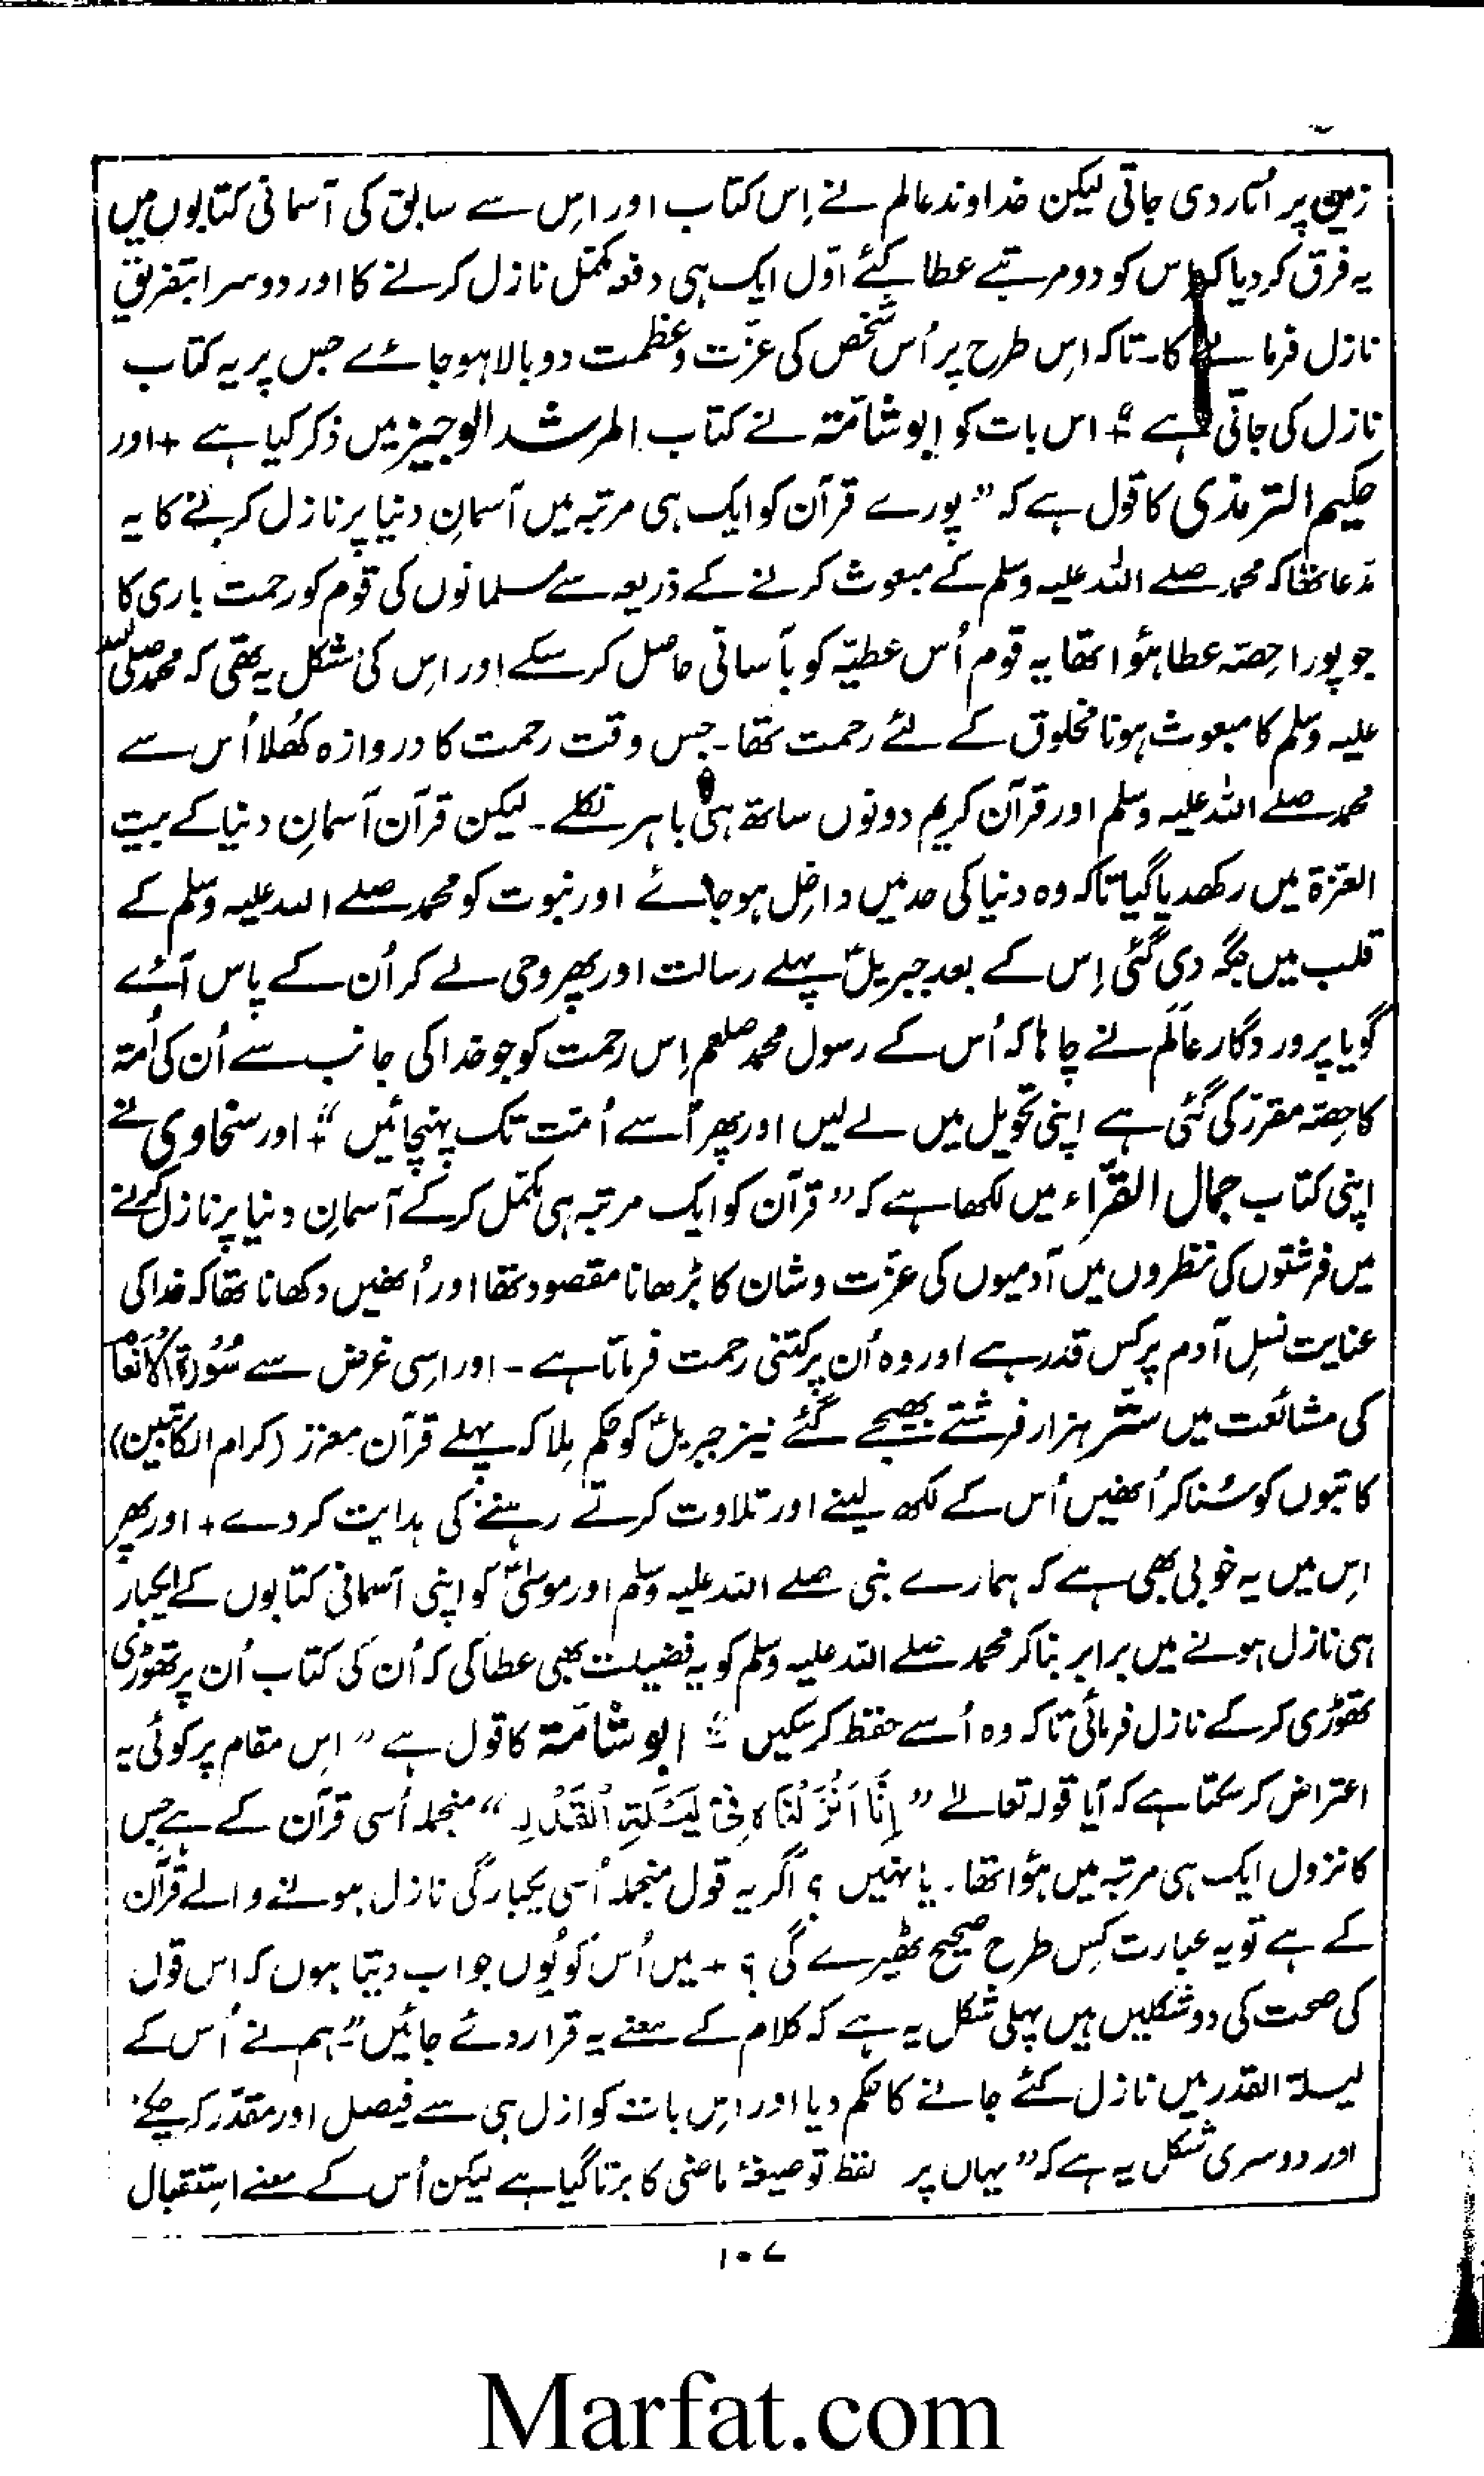 زمین پر اُتار دی جاتی لیکن خداوند عالم نے اِس کتاب اور اس سے سابق کی آسمانی کتابوں میں
یہ فرق کر دیا کہ اِس کو دو مرتبے عطا کئے اوّل ایک ہی دفعہ مکمّل نازل کرنے کا اور دوسرا بتفریق
نازل فرمانے کا۔ تاکہ اِس طرح پر اُس شخص کی عزّت و عظمت دوبالا ہو جائے جس پر یہ کتاب
نازل کی جاتی ہے“ + اس بات کو ابوشامّتہ نے کتاب المرشد الوجیز میں ذکر کیا ہے + اور
حکیم الترمذی کا قول ہے کہ ”پورے قرآن کو ایک ہی مرتبہ میں آسمانِ دنیا پر نازل کرنے کا یہ
مدّعا تھا کہ محمد صلے اللہ علیہ وسلم کے مبعوث کرنے کے ذریعہ سے مسلمانوں کی قوم کو رحمت باری کا
جو پورا حِصّہ عطا ہؤا تھا یہ قوم اُس عطیّہ کو بآسانی حاصل کر سکے اور اِس کی شکل یہ تھی کہ محمد صلی اللہ
علیہ وسلم کا مبعوث ہونا مخلوق کے لئے رحمت تھا۔ جس وقت رحمت کا دروازہ کُھلا اُس سے
محمد صلے اللہ علیہ وسلم اور قرآن کریم دونوں ساتھ ہی باہر نکلے۔ لیکن قرآن آسمانِ دنیا کے بیت
العزّۃ میں رکھدیا گیا تاکہ وہ دنیا کی حد میں داخِل ہو جائے اور نبوت کو محمد صلے اللہ علیہ وسلم کے
قلب میں جگہ دی گئی اِس کے بعد جبریلؑ پہلے رسالت اور پھر وحی لے کر اُن کے پاس آئے
گویا پروردگار عالَم نے چاہا کہ اُس کے رسول محمد صلعم اِس رحمت کو جو خدا کی جانب سے اُن کی اُمتہ
کا حِصّہ مقرر کی گئی ہے اپنی تحویل میں لے لیں اور پھر اُسے اُمت تک پہنچائیں“ + اور سخاوی نے
اپنی کتاب جمال القرّاء میں لکھا ہے کہ ”قرآن کو ایک مرتبہ ہی مکمّل کرکے آسمانِ دنیا پر نازل کرنے
میں فرشتوں کی نظروں میں آدمیوں کی عزّت و شان کا بڑھانا مقصود تھا اور اُنھیں دکھانا تھا کہ خدا کی
عنایت نسلِ آدم پر کس قدر ہے اور وہ اُن پر کتنی رحمت فرماتا ہے۔ اور اسی غرض سے سُوْرَۃ الْاَنْعَام
کی مشائعت میں ستّر ہزار فرشتے بھیجے گئے نیز جبریلؑ کو حکم مِلا کہ پہلے قرآن معزز (کرام الکاتبین)
کاتبوں کو سُنا کر اُنھیں اُس کے لکھ لینے اور تلاوت کرتے رہنے کی ہدایت کر دے + اور پھر
اِس میں یہ خوبی بھی ہے کہ ہمارے نبی صلے اللہ علیہ وسلم اور موسیٰؑ کو اپنی آسمانی کتابوں کے ایکبار
ہی نازل ہونے میں برابر بنا کر محمد صلے اللہ علیہ وسلم کو یہ فضیلت بھی عطا کی کہ اُن کی کتاب اُن پر تھوڑی
تھوڑی کرکے نازل فرمائی تاکہ وہ اُسے حفظ کر سکیں“ + ابوشامّتہ کا قول ہے ”اِس مقام پر کوئی یہ
اعتراض کر سکتا ہے کہ آیا قولہ تعالےٰ ”اِنَّا اَنْزَلْنَاہُ فِیْ لَیْلَۃِ الْقَدْرِ“ منجملہ اُسی قرآن کے ہے جس
کا نزول ایک ہی مرتبہ میں ہؤا تھا۔ یا نہیں؟ اگر یہ قول منجملہ اُسی یکبارگی نازل ہونے والے قرآن
کے ہے تو یہ عبارت کِس طرح صحیح ٹھیرے گی؟ + میں اُس کو یُوں جواب دیتا ہوں کہ اس قول
کی صحت کی دو شکلیں ہیں پہلی شکل یہ ہے کہ کلام کے معنے یہ قرار دئے جائیں ”ہم نے اُس کے
لیلۃ القدر میں نازل کئے جانے کا حکم دیا اور اِس بات کو ازل ہی سے فیصل اور مقدّر کر چکے“
اور دوسری شکل یہ ہے کہ ”یہاں پر لفظ تو صیغۂ ماضی کا برتا گیا ہے لیکن اُس کے معنے استِقبال
۱۰۷
Marfat.com